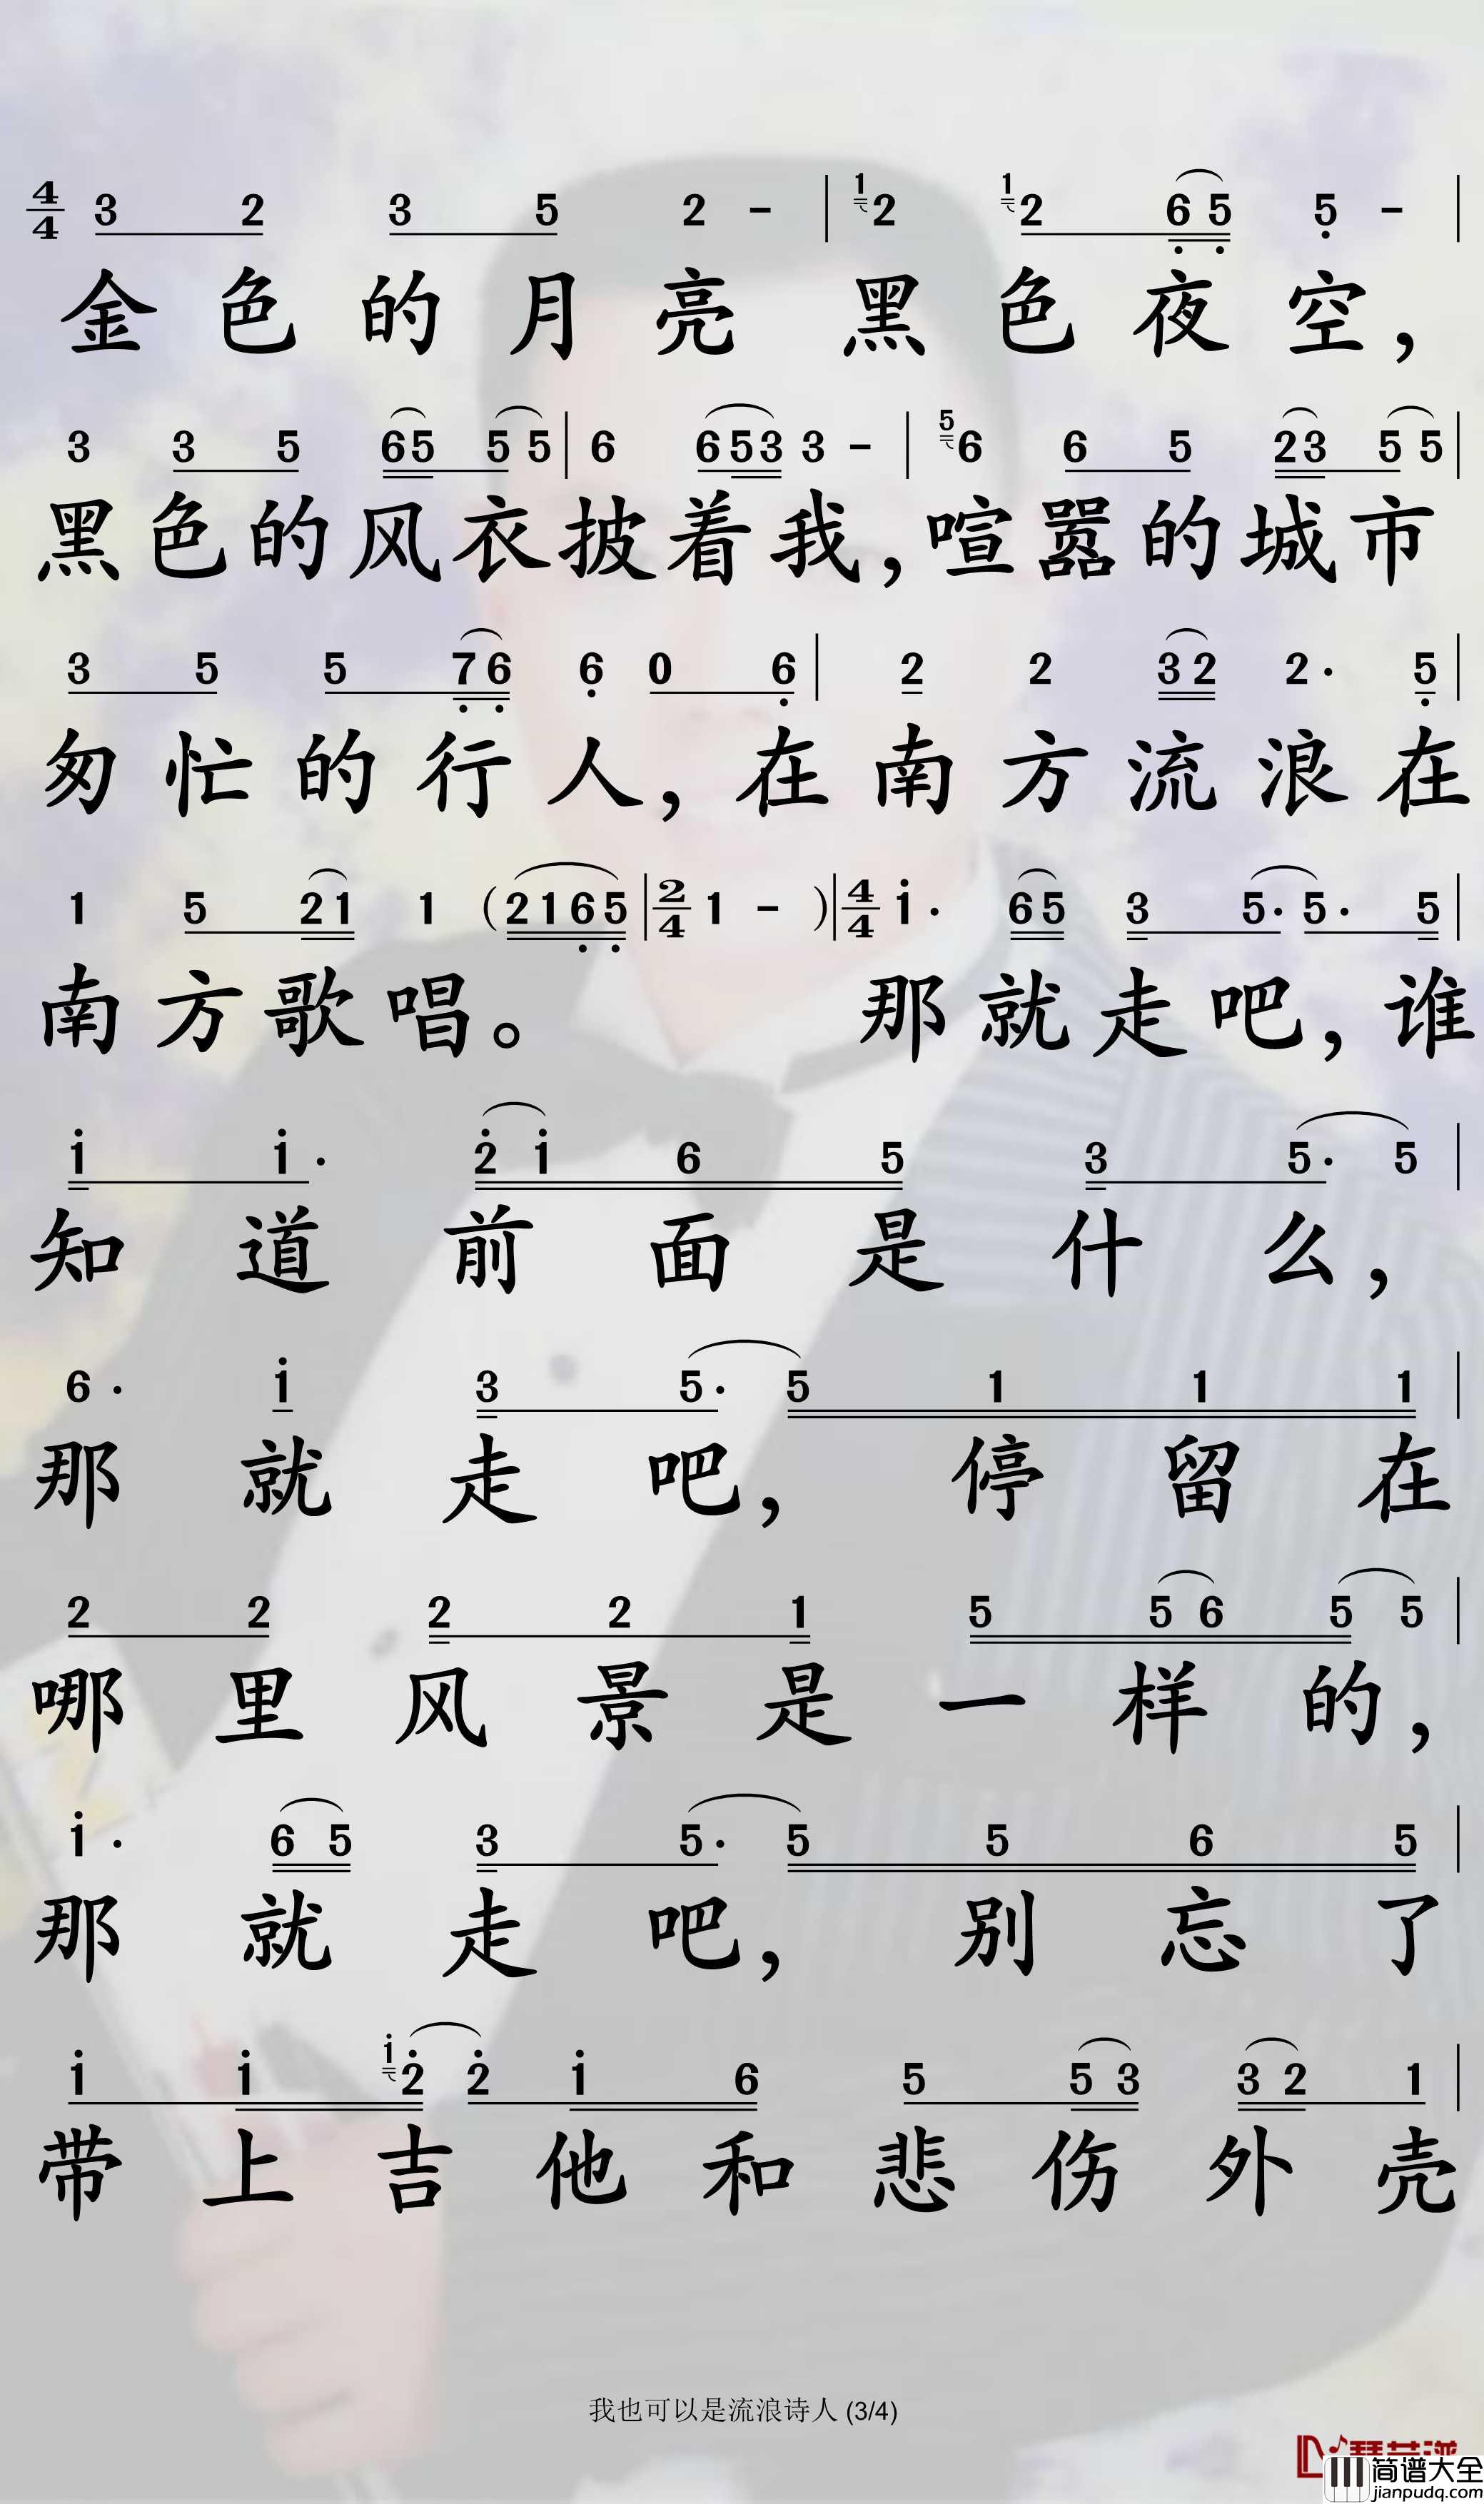 4/4 3 2 3 5 2 - | 1 2 1 2 6 5 5 - |
金色的月亮 黑色夜空，
3 3 5 65 5 5 | 6 653 3 - | 5 6 6 5 23 5 5 |
黑色的风衣披着我，喧嚣的城市
3 5 5 76 6 0 6 | 2 2 32 2· 5 |
匆忙的行人，在南方流浪在
1 5 21 1 (2165 | 2/4 1 - ) | 4/4 1· 65 3 5· 5· 5 |
南方歌唱。 那就走吧，谁
1 1· 2 1 6 5 3 5· 5 |
知道前面是什么，
6· 1 3 5· 5 1 1 1 |
那就走吧，停留在
2 2 2 2 1 5 5 6 5 5 |
哪里风景是一样的，
1· 6 5 3 5· 5 5 6 5 |
那就走吧，别忘了
1 1 1 2 2 1 6 5 5 3 3 2 1 |
带上吉他和悲伤外壳
我也可以是流浪诗人 (3/4)
简谱大全
jianpudq.com